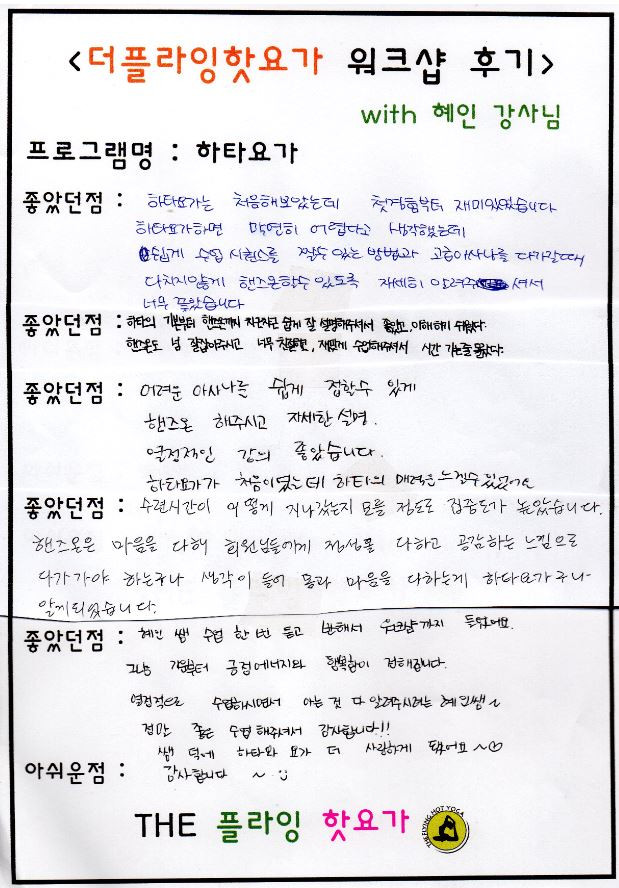 <더플라잉핫요가 워크샵 후기>
with 혜인 강사님
프로그램명 : 하타요가
좋았던점 : 하타요가는 처음해보았는데 첫경험부터 재미있었습니다
하타요가하면 막연히 어렵다고 생각했는데
쉽게 수업 시퀀스를 짤수 있는 방법과 고급아사나를 다가갈때
다치지않게 핸즈온할수 있도록 자세히 알려주셔서
너무 좋았습니다
좋았던점 : 하타의 기본부터 핸즈온까지 차근차근 쉽게 잘 설명해주셔서 좋았고 이해하기 쉬웠다.
핸즈온도 넘 잘잡아주시고 너무 친절하고, 재밌게 수업해주셔서 시간 가는줄 몰랐다.
좋았던점 : 어려운 아사나를 쉽게 접할수 있게
핸즈온 해주시고 자세한 설명.
열정적인 강의 좋았습니다.
하타요가가 처음이였는데 하타의 매력을 느낄수 있었어요
좋았던점 : 수련시간이 어떻게 지나갔는지 모를 정도로 집중도가 높았습니다.
핸즈온은 마음을 다해 회원님들에게 정성을 다하고 공감하는 느낌으로
다가가야 하는구나 생각이 들어 몸과 마음을 다하는게 하타요가구나-
알게되었습니다.
좋았던점 : 혜인 쌤 수업 한 번 듣고 반해서 워크샵까지 들었어요.
그냥 기운부터 긍정에너지와 행복함이 전해집니다.
열정적으로 수업하시면서 아는 것 다 알려주시려는 혜인쌤~
정말 좋은 수업 해주셔서 감사합니다!!
쌤 덕에 하타와 요가 더 사랑하게 됐어요~♡
아쉬운점 : 감사합니다 ~ :)
THE 플라잉 핫요가
THE FLYING HOT YOGA